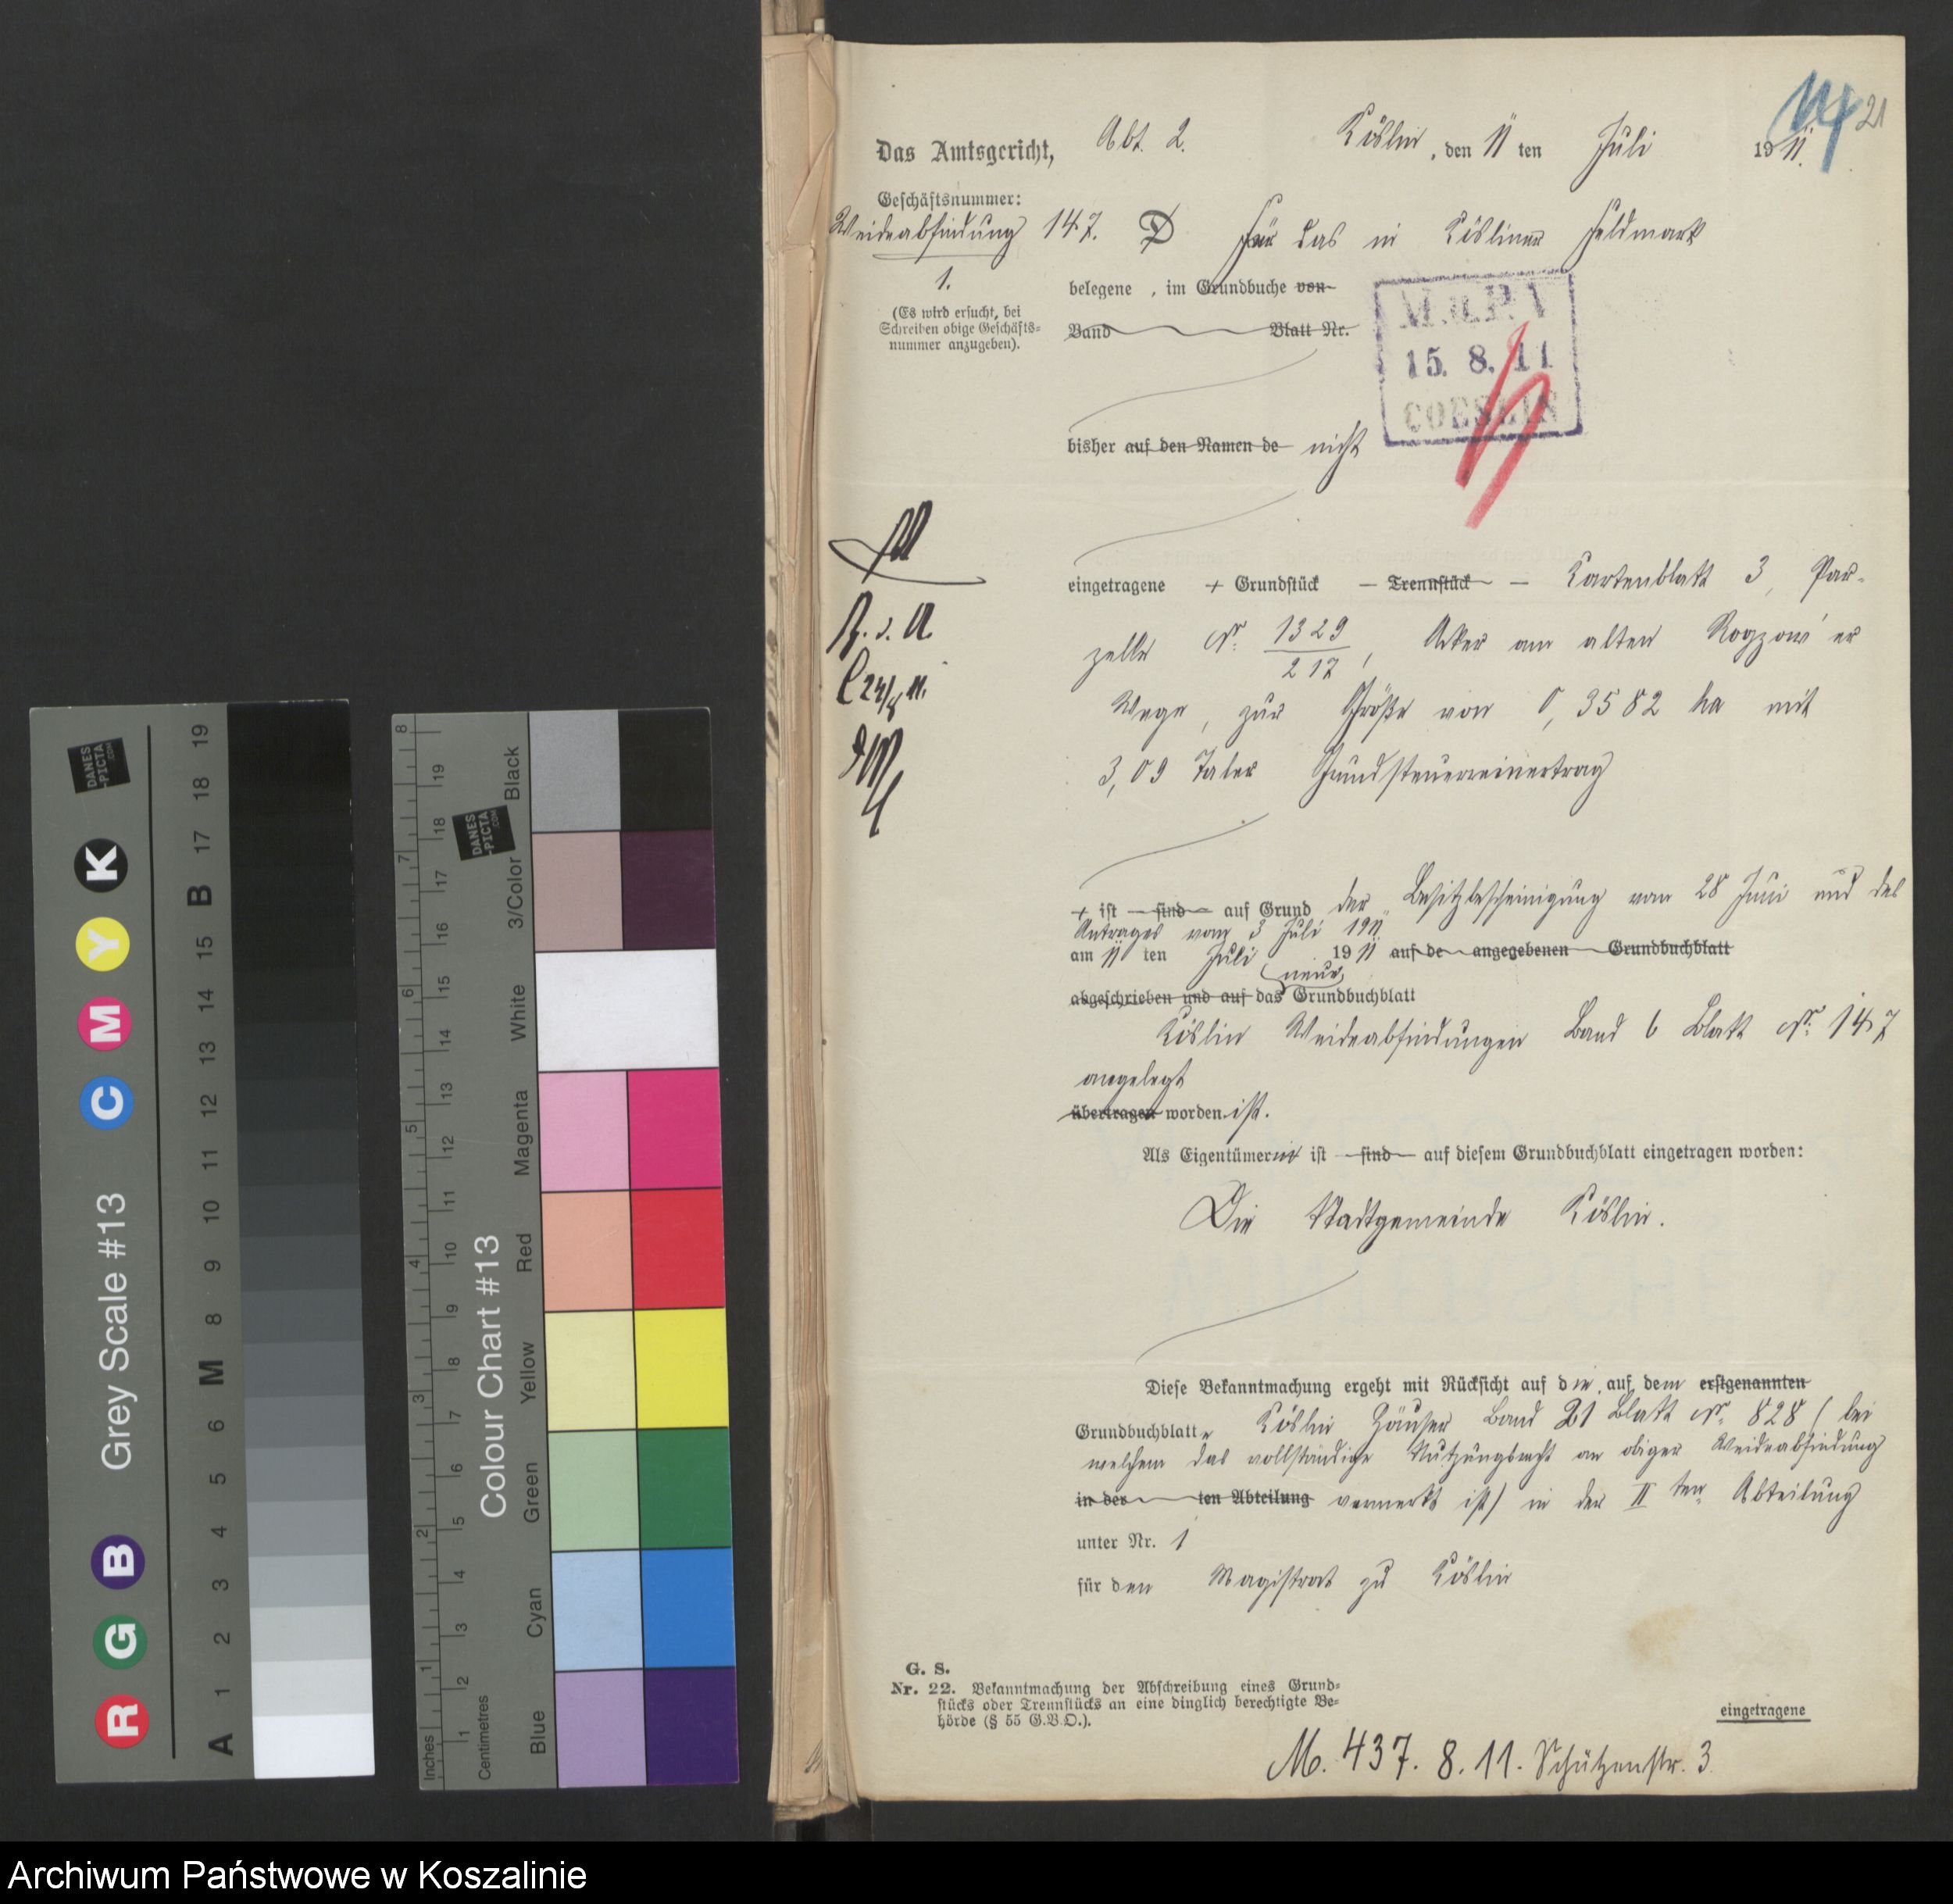 14 21
Das Amtsgericht, Abt. 2. Köslin, den 11 ten Juli 1911.
Geschäftsnummer:
Weideabfindung 147.
1.
(Es wird ersucht, bei
Schreiben obige Geschäfts-
nummer anzugeben).
Für das in Kösliner Feldmark
belegene , im Grundbuche von
Band Blatt Nr.
15. 8. 11
COESLIN
bisher auf den Namen de nicht
eingetragene + Grundstück — Trennstück — Kartenblatt 3, Par-
zelle Nr. 1329/217, Acker am alten Rogzow'er
Wege, zur Größe von 0,3582 ha mit
3,09 Taler Grundsteuerreinertrag
+ ist — sind — auf Grund der Besitzbescheinigung vom 28 Juni und des
Antrages vom 3 Juli 1911
am 11 ten Juli 1911 auf de angegebenen Grundbuchblatt
neue
abgeschrieben und auf das Grundbuchblatt
Köslin Weideabfindungen Band 6 Blatt Nr. 147
angelegt
übertragen worden ist.
Als Eigentümerin ist — sind — auf diesem Grundbuchblatt eingetragen worden:
Die Stadtgemeinde Köslin.
Diese Bekanntmachung ergeht mit Rücksicht auf die auf dem erstgenannten
Grundbuchblatte Köslin Häuser Band 21 Blatt Nr. 828 (bei
welchem das vollständige Nutzungsrecht an obiger Weideabfindung
in der ten Abteilung vermerkt ist) in der II ten Abteilung
unter Nr. 1
für den Magistrat zu Köslin
eingetragene
G. S.
Nr. 22. Bekanntmachung der Abschreibung eines Grund-
stücks oder Trennstücks an eine dinglich berechtigte Be-
hörde (§ 55 G.B.O.).
M. 437. 8. 11. Schützenstr. 3
Grey Scale #13
R G B C M Y K
A 1 2 3 4 5 6 M 8 9 10 11 12 13 14 15 B 17 18 19
DANES
-PICTA
.COM
Colour Chart #13
Blue Cyan Green Yellow Red Magenta White 3/Color Black
DANES
-PICTA
.COM
Inches 1 2 3 4 5 6 7 8
Centimetres 1 2 3 4 5 6 7 8 9 10 11 12 13 14 15 16 17 18 19
Archiwum Państwowe w Koszalinie